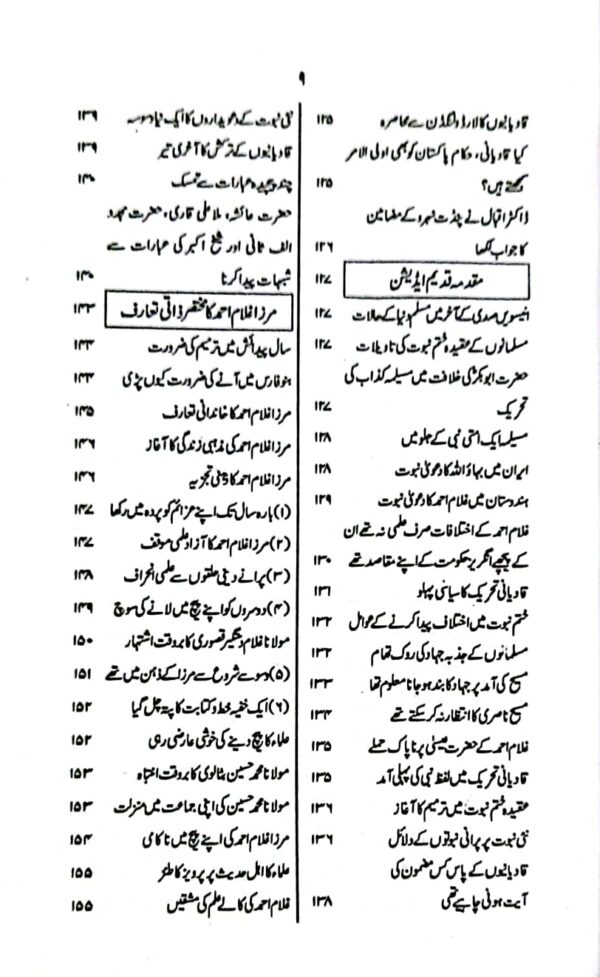 ۹
قادیانیوں کا لارڈ ولنگڈن سے محاصرہ ۱۲۵
کیا قادیانی، حکام پاکستان کو بھی اولی الامر
سمجھتے ہیں؟ ۱۲۵
ڈاکٹر اقبال نے پنڈت نہرو کے مضامین
کا جواب لکھا ۱۲۶
مقدمہ قدیم ایڈیشن ۱۲۷
انیسویں صدی کے آخر میں مسلم دنیا کے حالات ۱۲۷
مسلمانوں کے عقیدہ ختم نبوت کی تاویلات ۱۲۷
حضرت ابوبکرؓ کی خلافت میں مسیلمہ کذاب کی
تحریک ۱۲۷
مسیلمہ ایک امتی نبی کے جلو میں ۱۲۸
ایران میں بہاؤ اللہ کا دعویٰ نبوت ۱۲۸
ہندوستان میں غلام احمد کا دعویٰ نبوت ۱۲۹
غلام احمد کے اختلافات صرف علمی نہ تھے ان
کے پیچھے انگریز حکومت کے اپنے مقاصد تھے ۱۳۰
قادیانی تحریک کا سیاسی پہلو ۱۳۱
ختم نبوت میں اختلاف پیدا کرنے کے عوامل ۱۳۲
مسلمانوں کے جذبہ جہاد کی روک تھام ۱۳۲
مسیح کی آمد پر جہاد کا بند ہو جانا معلوم تھا ۱۳۳
مسیح ناصری کا انتظار نہ کر سکتے تھے ۱۳۴
غلام احمد کے حضرت عیسیٰؑ پر ناپاک حملے ۱۳۵
قادیانی تحریک میں لفظ نبی کی پہلی آمد ۱۳۵
عقیدہ ختم نبوت میں ترمیم کا آغاز ۱۳۶
نئی نبوت پر پرانی نبوتوں کے دلائل ۱۳۶
قادیانیوں کے پاس کس مضمون کی
آیت ہونی چاہیے تھی ۱۳۸
نئی نبوت کے دعویداروں کا ایک نیا وسوسہ ۱۳۹
قادیانیوں کے ترکش کا آخری تیر ۱۳۹
چند پیچیدہ عبارات سے تمسک ۱۴۰
حضرت عائشہ، ملا علی قاری، حضرت مجدد
الف ثانی اور شیخ اکبر کی عبارات سے
شبہات پیدا کرنا ۱۴۰
مرزا غلام احمد کا مختصر ذاتی تعارف ۱۴۳
سال پیدائش میں ترمیم کی ضرورت ۱۴۳
بنو فارس میں آنے کی ضرورت کیوں پڑی ۱۴۴
مرزا غلام احمد کا خاندانی تعارف ۱۴۵
مرزا غلام احمد کی مذہبی زندگی کا آغاز ۱۴۶
مرزا غلام احمد کا ذہنی تجزیہ ۱۴۶
(۱) بارہ سال تک اپنے عزائم کو پردہ میں رکھا ۱۴۷
(۲) مرزا غلام احمد کا آزاد علمی موقف ۱۴۷
(۳) پرانے دینی حلقوں سے علمی انحراف ۱۴۸
(۴) دوسروں کو اپنے پیچ میں لانے کی سوچ ۱۴۹
مولانا غلام دستگیر قصوری کا بروقت اشتہار ۱۵۰
(۵) دعوے شروع سے مرزا کے ذہن میں تھے ۱۵۱
(۶) ایک خفیہ خط و کتابت کا پتہ چل گیا ۱۵۲
علماء کا پیچ دینے کی خوشی عارضی رہی ۱۵۲
مولانا محمد حسین بٹالوی کا بروقت انتباہ ۱۵۳
مولانا محمد حسین کی اپنی جماعت میں منزلت ۱۵۳
مرزا غلام احمد کی اپنے پیچ میں ناکامی ۱۵۴
علماء کا اہل حدیث پر پرویز کا طنز ۱۵۵
غلام احمد کی کالے علم کی مشقیں ۱۵۵